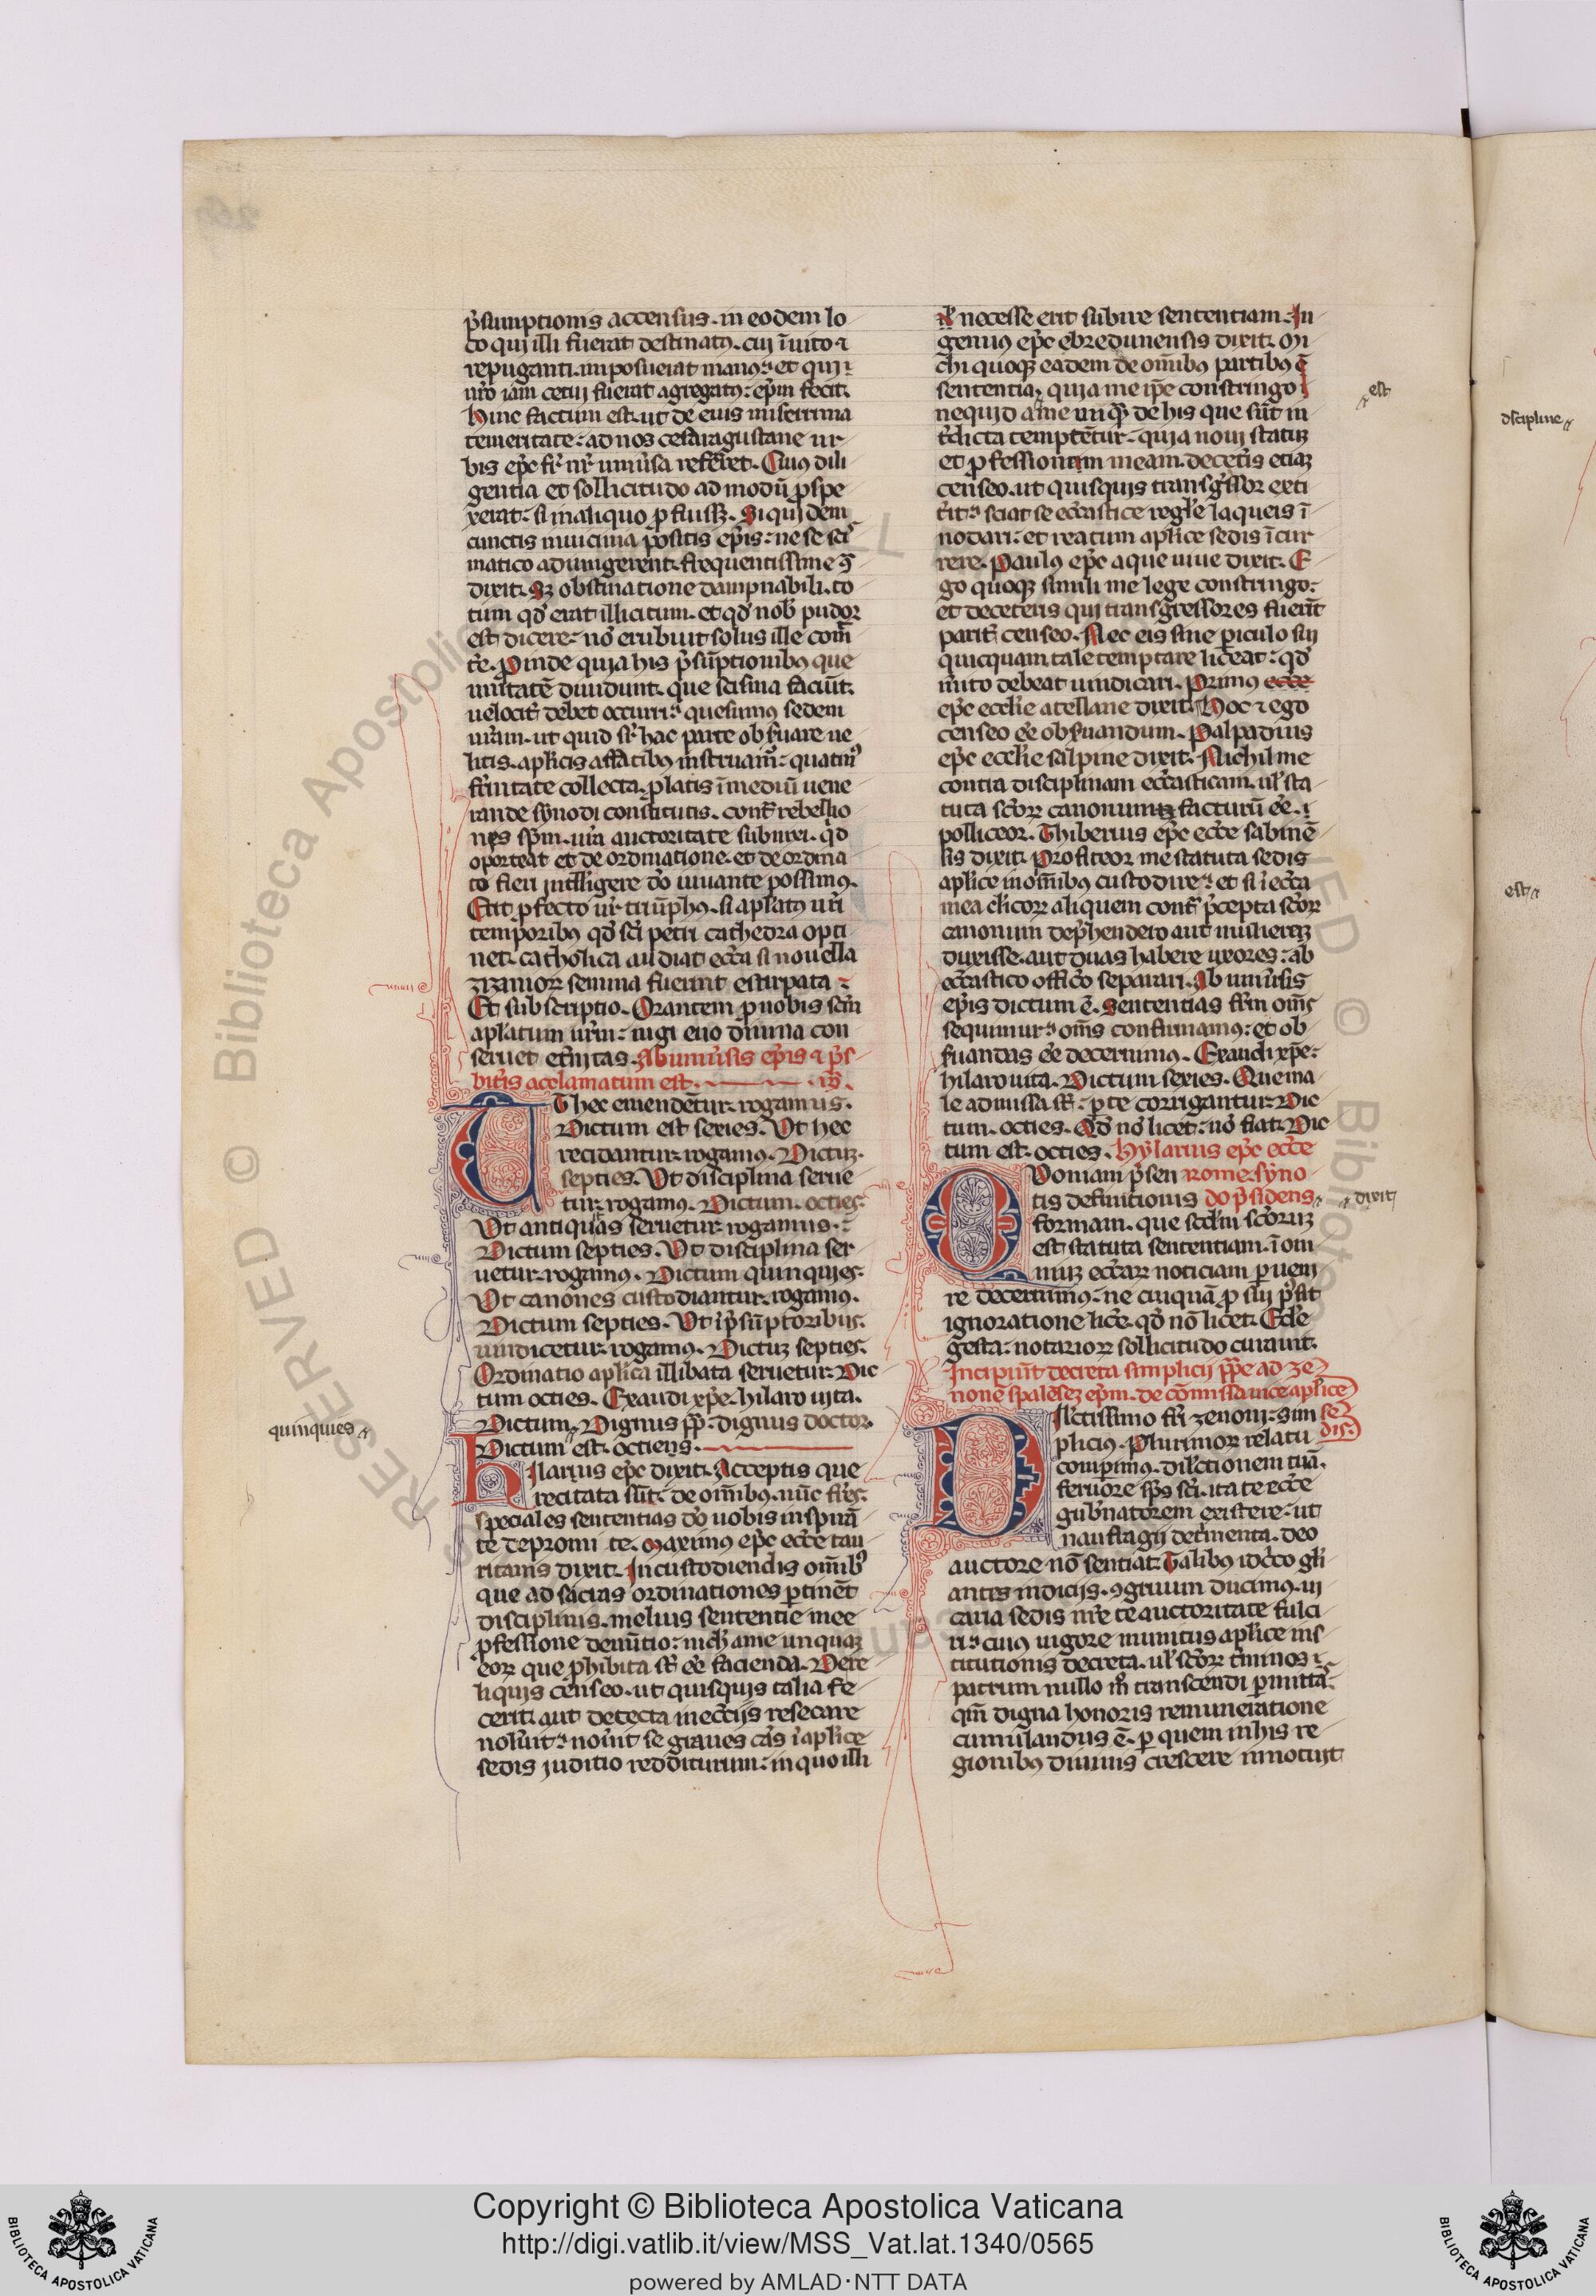 p̄sumptionis accensus. in eodem lo
co qui illi fuerat destinatꝯ. cui īuito ⁊
repugnanti. imposuerat manꝯ: et qui ⁊
nr̄o iam cetui fuerat agregatꝯ: ep̄m fecit.
Hinc factum est. ut de eius miserrima
temeritate: ad nos cesaragustane ur
bis ep̄c fr̄ nr̄ uniūsa referret. Cuiꝯ dili
gentia et sollicitudo ad modū ꝓspe
xerat: si in aliquo ꝓfuissꝫ. Siquidem
cunctis in uicinia positis ep̄is: ne se scis
matico adiungerent. frequentissime ꝯ̄
dixit. Sꝫ obstinatione dampnabili. to
tum qd̄ erat illicitum. et qd̄ nob̄ pudor
est dicere: nō erubuit solus ille com̄
t̄e. Proinde quia his p̄sūptionibꝯ que
unitatē diuidunt. que scisma faciūt.
uelocit̄ debet occurri: quesumꝯ sedem
ur̄am. ut quid sr̄ hac parte obseruare ue
litis. ap̄licis affatibꝯ instruam̄: quatinꝯ
fr̄nitate collecta. ꝓlatis ī mediū uene
rande synodi constitutis. cont̄ rebellio
nes sp̄m. ur̄a auctoritate subnixi. qd̄
oporteat et de ordinatione. et de ordina
to fieri intelligere dō iuuante possimꝯ.
Erit ꝓfecto ur̄ triūphꝯ. si ap̄latꝯ ur̄i
temporibꝯ qd̄ sc̄i petri cathedra opti
net. catholica audiat ecc̄a si nouella
zizaniorꝝ semina fuerint extirpata :
Et subscriptio. Orantem ꝓ nobis sc̄m
ap̄latum ur̄m: iugi euo diuina con
seruet et̄nitas. Ab uniūsis ep̄is ⁊ p̄s
bit̄is acclamatum est.
UT hec emendētur. rogamus.
Dictum est sexies. Vt hec
recidantur. rogamꝯ. Dictuꝫ.
septies. Vt disciplina serue
tur. rogamꝯ. Dictum. octies.
Vt antiquas seruetur. rogamus.
Dictum septies. Vt disciplina ser
uetur. rogamꝯ. Dictum quinquies.
Vt canones custodiantur. rogamꝯ.
Dictum septies. Vt ī p̄sūptoribus.
uindicetur. rogamꝯ. Dictuꝫ septies.
Ordinatio ap̄lica illibata seruetur. Dic
tum octies. Exaudi xp̄e. hilaro uita.
quinquies
Dictum. Dignus pp̄. dignus doctor.
Dictum est. octiens.
Hilarius ep̄c dixit. Acceptis que
recitata sūt. de om̄ibꝯ. nūc fr̄es.
speciales sententias dō uobis inspirā
te depromite. Maximus ep̄c ecc̄e tau
ritanis dixit. In custodiendis om̄ibꝯ
que ad sacras ordinationes ꝑtinēt
disciplinis. melius sententie mee
ꝓfessione denūtio: nich̄ a me unquaꝫ
eorꝝ que ꝓhibita st̄ ee̅ facienda. De re
liquis censeo. ut quisquis talia fe
cerit. aut detecta in ecc̄iis resecare
nolūit: nou̅it se graues cās ī ap̄lice
sedis iuditio redditurum: in quo illi
necesse erit subire sententiam. In
genuꝯ ep̄c ebredunensis dixit. Mi
chi quoqꝫ eadem de om̄ibꝯ partibꝯ ē
sententia, quia me ip̄e constringo
est
ne quid a me unq̄ꝫ de his que sūt in
t̄dicta temptētur. quia noui statuꝫ
et ꝓfessionem meam. decet̄is etiaꝫ
censeo. ut quisquis transḡssor exti
t̄it: sciat se ecc̄iastice regl̄e laqueis ī
nodari: et reatum ap̄lice sedis īcur
rere. Paulꝯ ep̄c aque uiue dixit. E
go quoqꝫ simili me lege constringo:
et deceteris qui transgressores fuerīt
parit̄ censeo. Nec eis sine ꝑiculo sui
quicquam tale temptare liceat: qd̄
m̄ito debeat uindicari. Primꝯ
ep̄c eccl̄ie atellane dixit. Hoc ⁊ ego
censeo ee̅ obseruandum. Palpadius
ep̄c eccl̄ie salpine dixit. Nichil me
contra disciplinam ecc̄iasticam. ul̄ sta
tuta sc̄orꝝ canonum facturū ee̅. ⁊
polliceor. Thiberius ep̄c ecc̄e sabinē
sis dixit. Profiteor me statuta sedis
ap̄lice in om̄ibus custodire: et si ī ecc̄ia
mea cl̄icorꝝ aliquem cont̄ p̄cepta sc̄orꝝ
canonum dep̄hendero aut mulierēꝫ
duxisse. aut duas habere uxores: ab
ecc̄iastico offico separari. Ab uniūsis
ep̄is dictum ē. Sententias fr̄m om̄s
sequimur: om̄s confirmamꝯ: et ob
seruandas ee̅ decernimꝯ. Exaudi xp̄e:
hilaro uita. Dictum sexies. Que ma
le admissa st̄: ꝑ te corrigantur. Dic
tum. octies. Qd̄ nō licet: nō fiat. Dic
tum est. octies. Hylarius ep̄c ecc̄e
Quoniam p̄sen Rome. syno
tis definitionis do p̄sidens dixit
formam. que sec̄dm sc̄oruꝫ
est statuta sententiam. ī om
niuꝫ ecc̄iarꝝ noticiam ꝑueni
re decernimꝯ: ne cuiquā ꝓ sui p̄sit
ignoratione lice̅. qd̄ nō licet. Edē
gesta: notariorꝝ sollicitudo curauit.
Incipiūt decreta simplicii pp̄e ad ze
nonē spalēsez ep̄m. de cōmissa uice ap̄lice
se
dis.
Dilectissimo fr̄i zenoni: sim
plicius. Plurimorꝝ relatu
comperimꝯ. dilectionem tuā.
feruore sp̄s sc̄i. ita te ecc̄e
gub̄natorem existere. ut
naufragii det̄menta. deo
auctore nō sentiat. Talibus idc̄co gl̄i
antes indiciis. ꝯgruum ducimꝯ. ui
caria sedis nr̄e te auctoritate fulci
ri: cuiꝯ uigore munitus ap̄lice ins
titutionis decreta. ul̄ sc̄orꝝ t̄minos ⁊
patrum nullo m̄o transcendi ꝑmittas:
qm̄ digna honoris remuneratione
cumulandus ē. ꝑ quem in his re
gionibꝯ diuinus crescere innotuit
discipline
est
Copyright © Biblioteca Apostolica Vaticana
http://digi.vatlib.it/view/MSS_Vat.lat.1340/0565
powered by AMLAD·NTT DATA
BIBLIOTECA APOSTOLICA VATICANA
BIBLIOTECA APOSTOLICA VATICANA